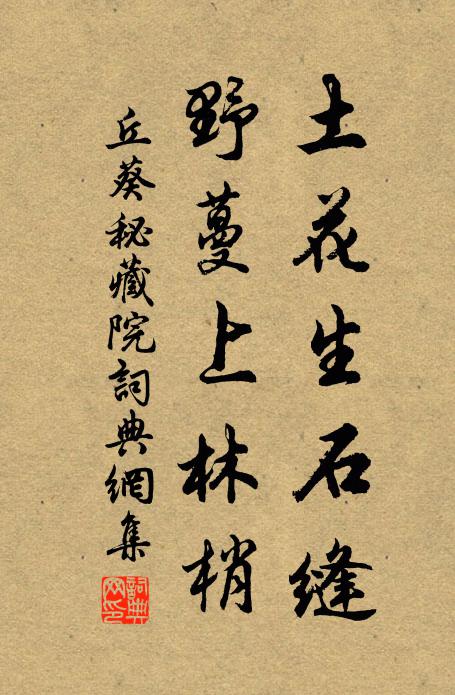 土花生石縫
野蔓上林梢
丘葵秘藏院詞典網集
詞典網印